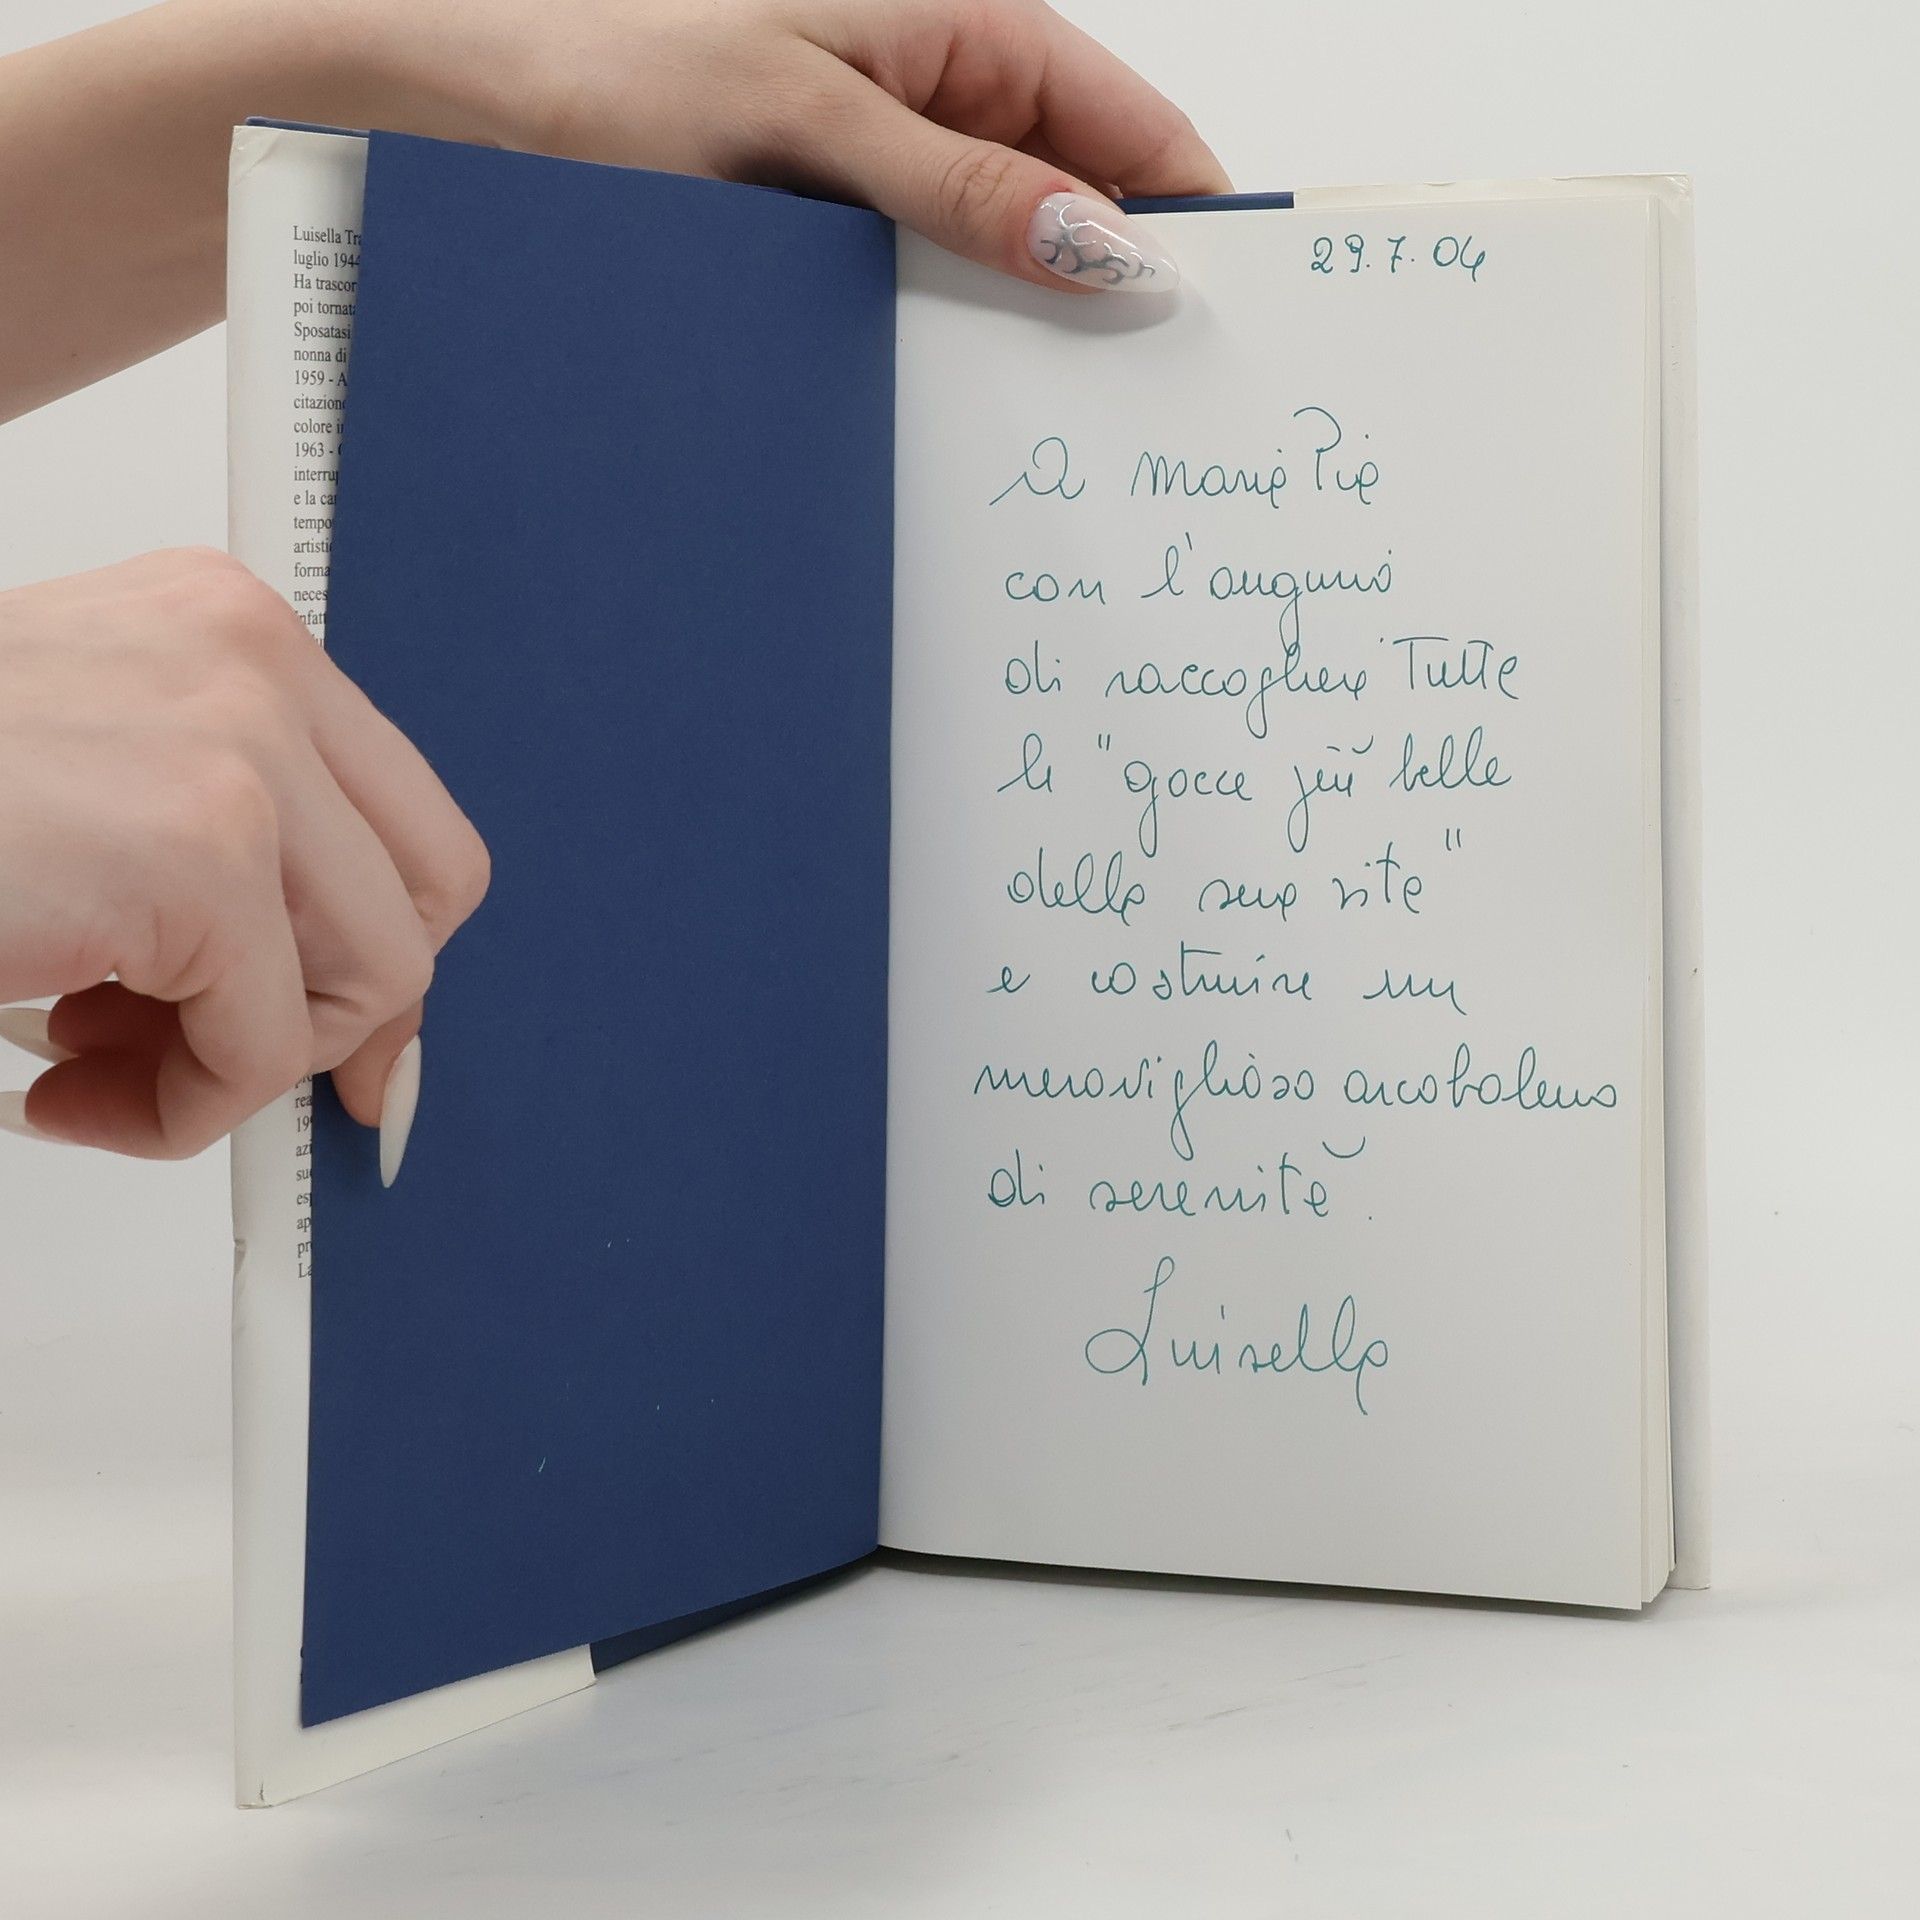 Luisella Tra
luglio 1944
Ha trascor
poi tornata
Sposatasi
nonna di
1959 - A
citazione
colore i
1963 -
interru
e la ca
tempo
artisti
forma
neces
nfatt
rea
19
azi
su
es
ap
pr
La
29.7.04
A Maria Pia
con l'augurio
di raccogliere Tutte
le "gocce più belle
della sua vita"
e costruire un
meraviglioso arcobaleno
di serenità.
Luisella